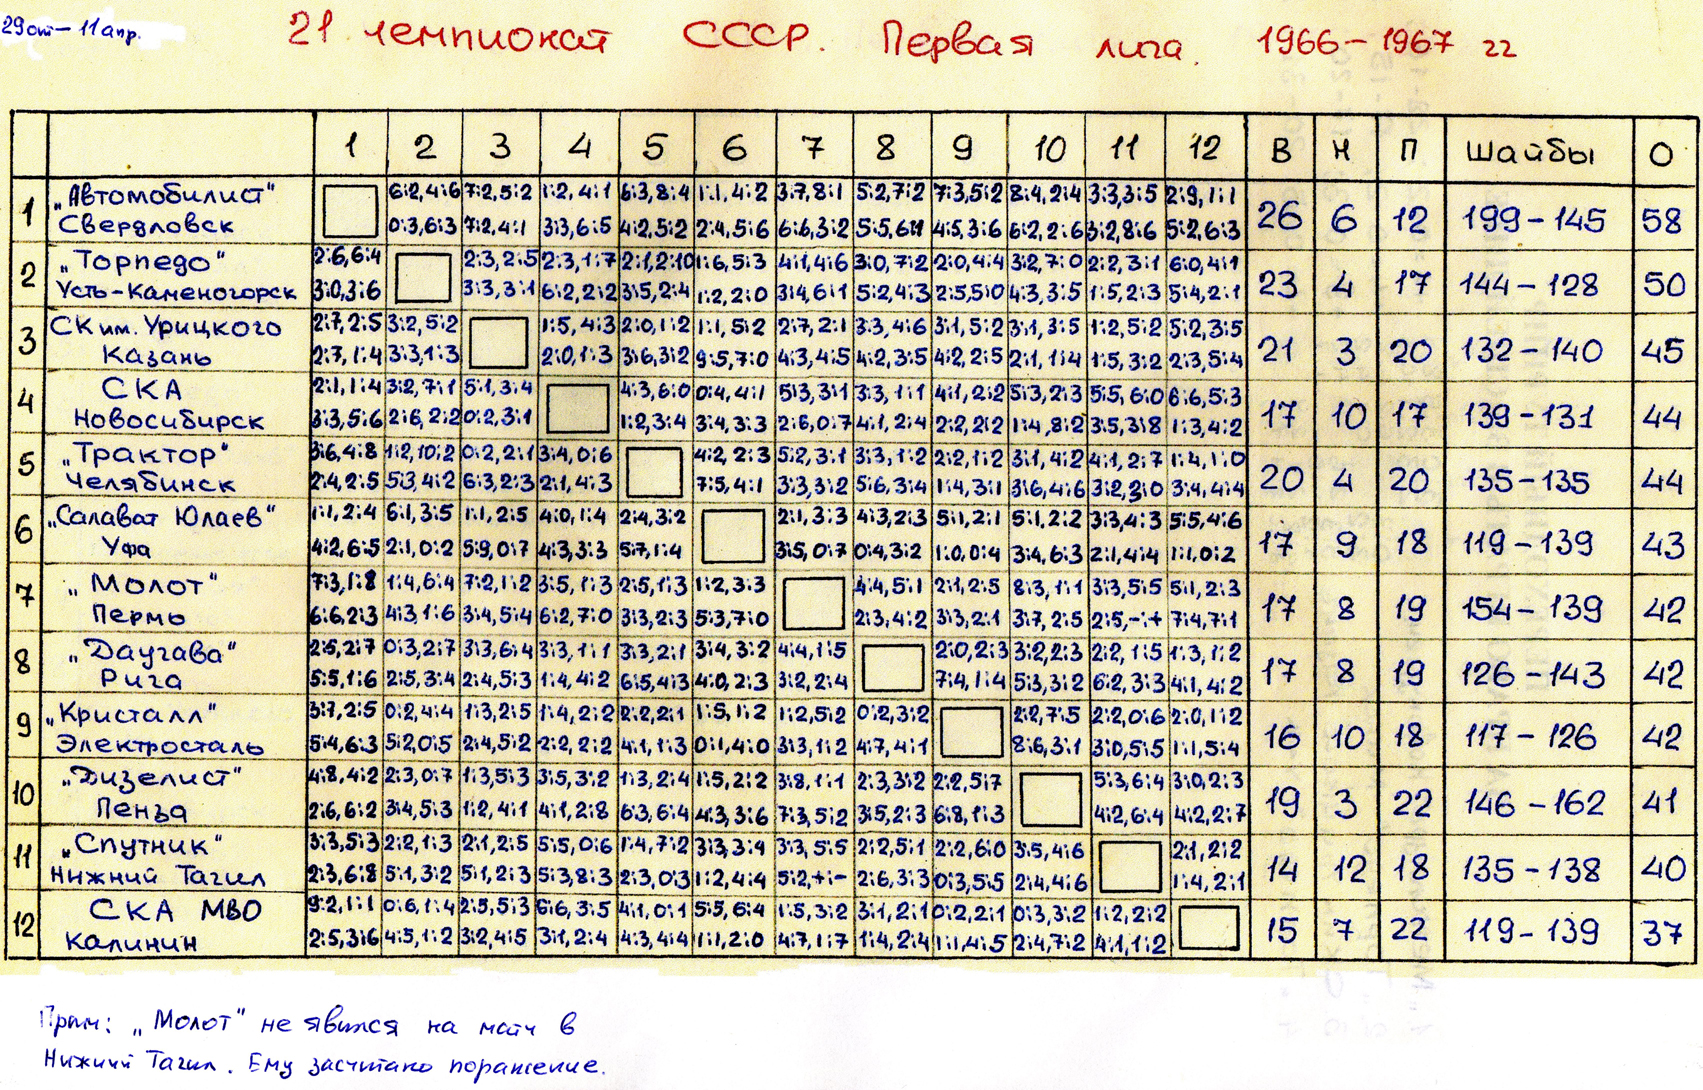 29 окт – 11 апр.
21 чемпионат СССР. Первая лига. 1966 – 1967 гг
1 2 3 4 5 6 7 8 9 10 11 12 В Н П Шайбы О
1 „Автомобилист“ 6:2,4:6 7:2,5:2 1:2,4:1 6:3,8:4 1:1,4:2 3:7,8:1 5:2,7:2 7:3,5:2 8:4,2:4 3:3,3:5 2:9,1:1
Свердловск 0:3,6:3 7:2,4:1 3:3,6:5 4:2,5:2 2:4,5:6 6:6,3:2 5:5,6:1 4:5,3:6 6:2,2:6 3:2,8:6 5:2,6:3 26 6 12 199 – 145 58
2 „Торпедо“ 2:6,6:4 2:3,2:5 2:3,1:7 2:1,2:10 1:6,5:3 4:1,4:6 3:0,7:2 2:0,4:4 3:2,7:0 2:2,3:1 6:0,4:1
Усть-Каменогорск 3:0,3:6 3:3,3:1 6:2,2:2 3:5,2:4 1:2,2:0 3:4,6:1 5:2,4:3 2:5,5:0 4:3,3:5 1:5,2:3 5:4,2:1 23 4 17 144 – 128 50
3 СК им. Урицкого 2:7,2:5 3:2,5:2 1:5,4:3 2:0,1:2 1:1,5:2 2:7,2:1 3:3,4:6 3:1,5:2 3:1,3:5 1:2,5:2 5:2,3:5
Казань 2:7,1:4 3:3,1:3 2:0,1:3 3:6,3:2 9:5,7:0 4:3,4:5 4:2,3:5 4:2,2:5 2:1,1:4 1:5,3:2 2:3,5:4 21 3 20 132 – 140 45
4 СКА 2:1,1:4 3:2,7:1 5:1,3:4 4:3,6:0 0:4,4:1 5:3,3:1 3:3,1:1 4:1,2:2 5:3,2:3 5:5,6:0 6:6,5:3
Новосибирск 3:3,5:6 2:6,2:2 0:2,3:1 1:2,3:4 3:4,3:3 2:6,0:7 4:1,2:4 2:2,2:2 1:4,8:2 3:5,3:8 1:3,4:2 17 10 17 139 – 131 44
5 „Трактор“ 3:6,4:8 1:2,10:2 0:2,2:1 3:4,0:6 4:2,2:3 5:2,3:1 3:3,1:2 2:2,1:2 3:1,4:2 4:1,2:7 1:4,1:0
Челябинск 2:4,2:5 5:3,4:2 6:3,2:3 2:1,4:3 7:5,4:1 3:3,3:2 5:6,3:4 1:4,3:1 3:6,4:6 3:2,3:0 3:4,4:4 20 4 20 135 – 135 44
6 „Салават Юлаев“ 1:1,2:4 6:1,3:5 1:1,2:5 4:0,1:4 2:4,3:2 2:1,3:3 4:3,2:3 5:1,2:1 5:1,2:2 3:3,4:3 5:5,4:6
Уфа 4:2,6:5 2:1,0:2 5:9,0:7 4:3,3:3 5:7,1:4 3:5,0:7 0:4,3:2 1:0,0:4 3:4,6:3 2:1,4:4 1:1,0:2 17 9 18 119 – 139 43
7 „Молот“ 7:3,1:8 1:4,6:4 7:2,1:2 3:5,1:3 2:5,1:3 1:2,3:3 4:4,5:1 2:1,2:5 8:3,1:1 3:3,5:5 5:1,2:3
Пермь 6:6,2:3 4:3,1:6 3:4,5:4 6:2,7:0 3:3,2:3 5:3,7:0 2:3,4:2 3:3,2:1 3:7,2:5 2:5,-:+ 7:4,7:1 17 8 19 154 – 139 42
8 „Даугава“ 2:5,2:7 0:3,2:7 3:3,6:4 3:3,1:1 3:3,2:1 3:4,3:2 4:4,1:5 2:0,2:3 3:2,2:3 2:2,1:5 1:3,1:2
Рига 5:5,1:6 2:5,3:4 2:4,5:3 1:4,4:2 6:5,4:3 4:0,2:3 3:2,2:4 7:4,1:4 5:3,3:2 6:2,3:3 4:1,4:2 17 8 19 126 – 143 42
9 „Кристалл“ 3:7,2:5 0:2,4:4 1:3,2:5 1:4,2:2 2:2,2:1 1:5,1:2 1:2,5:2 0:2,3:2 2:2,7:5 2:2,0:6 2:0,1:2
Электросталь 5:4,6:3 5:2,0:5 2:4,5:2 2:2,2:2 4:1,1:3 0:1,4:0 3:3,1:2 4:7,4:1 8:6,3:1 3:0,5:5 1:1,5:4 16 10 18 117 – 126 42
10 „Дизелист“ 4:8,4:2 2:3,0:7 1:3,5:3 3:5,3:2 1:3,2:4 1:5,2:2 3:8,1:1 2:3,3:2 2:2,5:7 5:3,6:4 3:0,2:3
Пенза 2:6,6:2 3:4,5:3 1:2,4:1 4:1,2:8 6:3,6:4 4:3,3:6 7:3,5:2 3:5,2:3 6:8,1:3 4:2,6:4 4:2,2:7 19 3 22 146 – 162 41
11 „Спутник“ 3:3,5:3 2:2,1:3 2:1,2:5 5:5,0:6 1:4,7:2 3:3,3:4 3:3,5:5 2:2,5:1 2:2,6:0 3:5,4:6 2:1,2:2
Нижний Тагил 2:3,6:8 5:1,3:2 5:1,2:3 5:3,8:3 2:3,0:3 1:2,4:4 5:2,+:- 2:6,3:3 0:3,5:5 2:4,4:6 1:4,2:1 14 12 18 135 – 138 40
12 СКА МВО 9:2,1:1 0:6,1:4 2:5,5:3 6:6,3:5 4:1,0:1 5:5,6:4 1:5,3:2 3:1,2:1 0:2,2:1 0:3,3:2 1:2,2:2
Калинин 2:5,3:6 4:5,1:2 3:2,4:5 3:1,2:4 4:3,4:4 1:1,2:0 4:7,1:7 1:4,2:4 1:1,4:5 2:4,7:2 4:1,1:2 15 7 22 119 – 139 37
Прим: „Молот“ не явился на матч в
Нижний Тагил. Ему засчитано поражение.